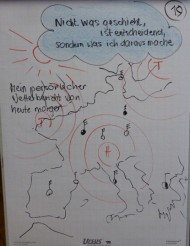 19
Nicht was geschieht,
ist entscheidend,
sondern was ich daraus mache
Mein persönlicher
Wetterbericht von
heute morgen
T
T
H
T